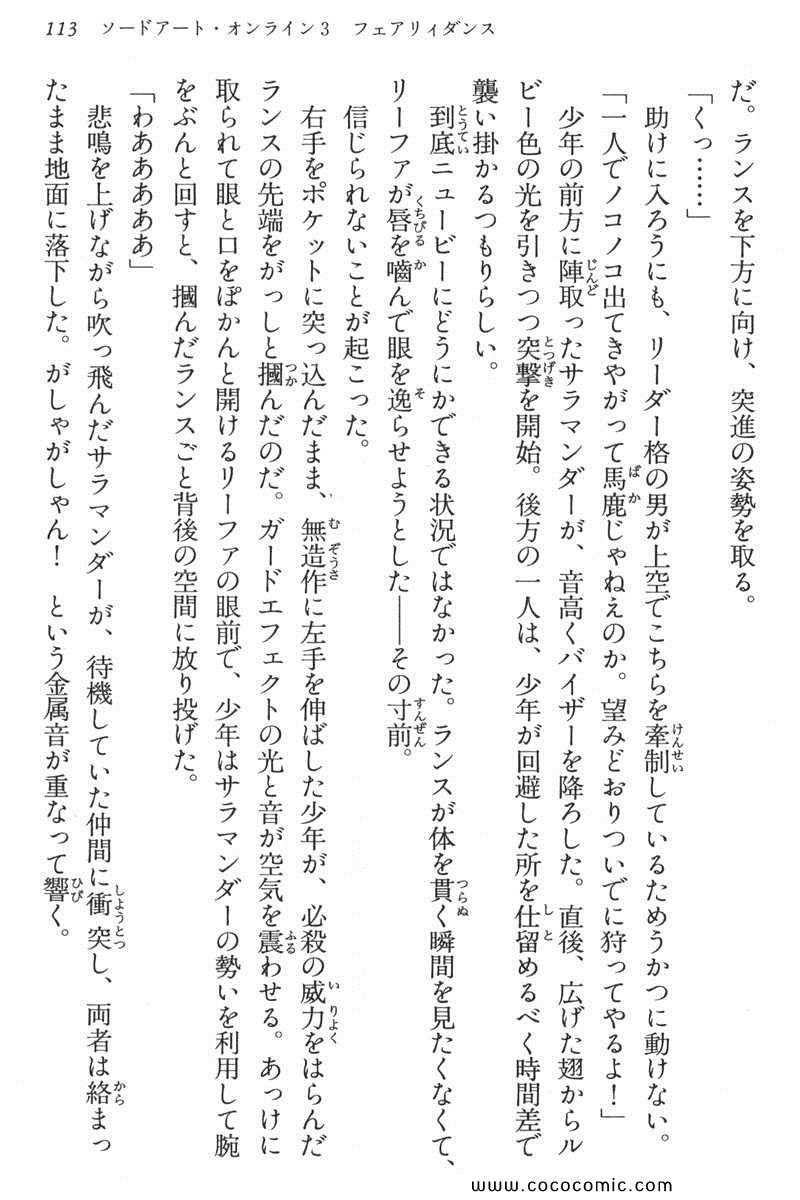 113　ソードアート・オンライン3　フェアリィダンス
だ。ランスを下方に向け、突進の姿勢を取る。
「くっ……」
助けに入ろうにも、リーダー格の男が上空でこちらを牽制しているためうかつに動けない。
「一人でノコノコ出てきやがって馬鹿じゃねえのか。望みどおりついでに狩ってやるよ！」
少年の前方に陣取ったサラマンダーが、音高くバイザーを降ろした。直後、広げた翅からル
ビー色の光を引きつつ突撃を開始。後方の一人は、少年が回避した所を仕留めるべく時間差で
襲い掛かるつもりらしい。
到底ニュービーにどうにかできる状況ではなかった。ランスが体を貫く瞬間を見たくなくて、
リーファが唇を嚙んで眼を逸らせようとした――その寸前。
信じられないことが起こった。
右手をポケットに突っ込んだまま、無造作に左手を伸ばした少年が、必殺の威力をはらんだ
ランスの先端をがっしと摑んだのだ。ガードエフェクトの光と音が空気を震わせる。あっけに
取られて眼と口をぽかんと開けるリーファの眼前で、少年はサラマンダーの勢いを利用して腕
をぶんと回すと、摑んだランスごと背後の空間に放り投げた。
「わあああああ」
悲鳴を上げながら吹っ飛んだサラマンダーが、待機していた仲間に衝突し、両者は絡まっ
たまま地面に落下した。がしゃがしゃん！　という金属音が重なって響く。
www.cococomic.com